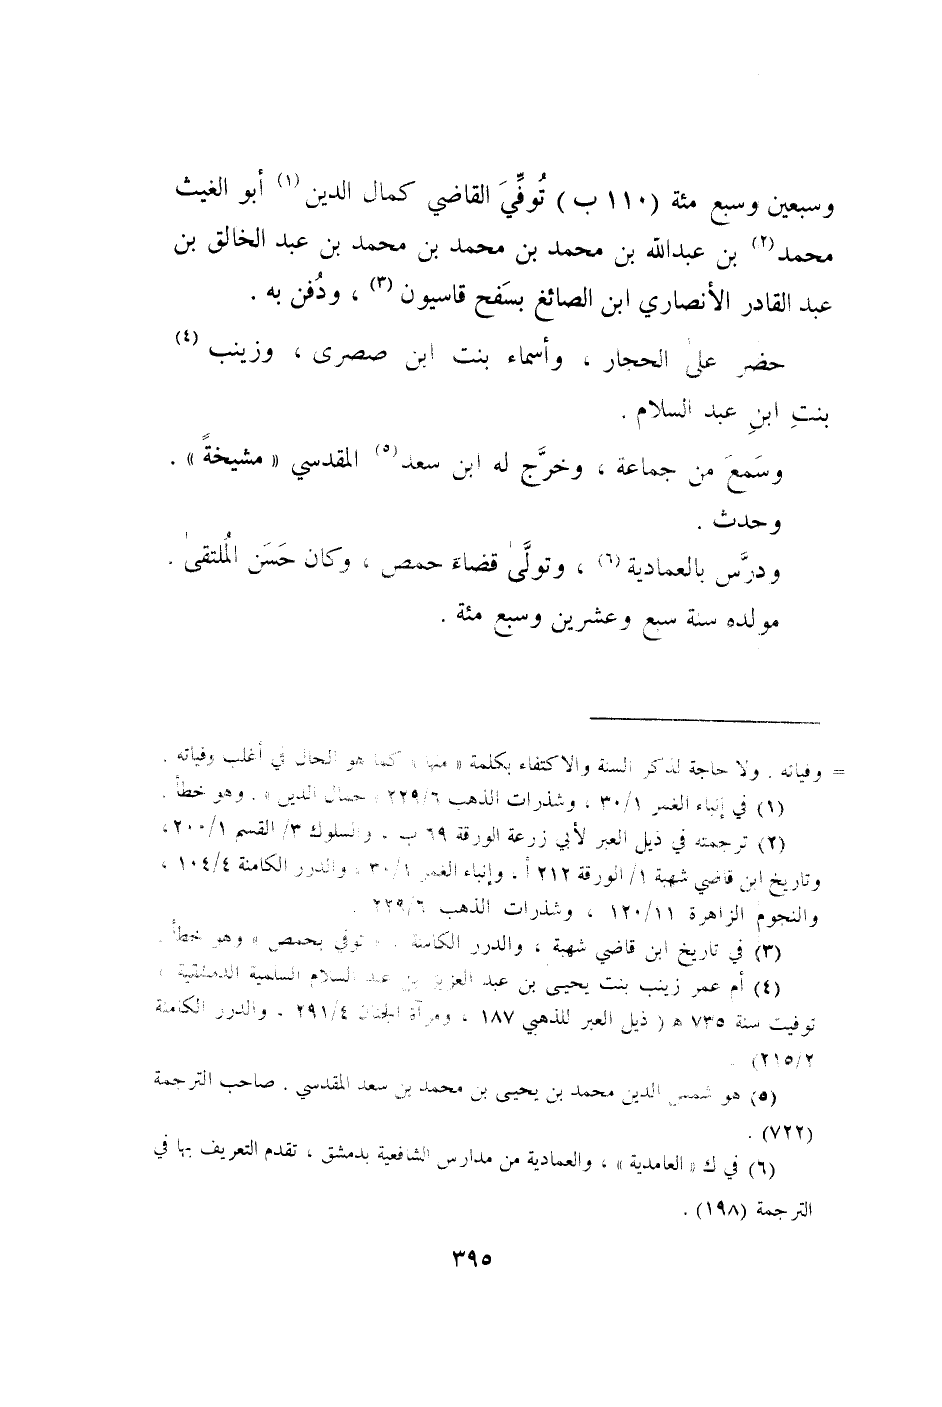 وسبعين وسبع مئة (١١٠ ب) تُوفِّيَ القاضي كمال الدين (١) أبو الغيث
محمد (٢) بن عبدالله بن محمد بن محمد بن محمد بن عبد الخالق بن
عبد القادر الأنصاري ابن الصائغ بسَفح قاسيون (٣) ، ودُفن به .
حضر على الحجار ، وأسماء بنت ابن صصرى ، وزينب (٤)
بنتِ ابنِ عبد السلام .
وسَمعَ من جماعة ، وخرَّج له ابن سعد (٥) المقدسي « مشيخةً » .
وحدث .
ودرَّس بالعمادية (٦) ، وتولَّى قضاءَ حمص ، وكان حَسَن المُلتقىٰ .
مولده سنة سبع وعشرين وسبع مئة .
= وفياته . ولا حاجة لذكر السنة والاكتفاء بكلمة « منها » كما هو الحال في أغلب وفياته .
(١) في إنباء الغمر ٣٠/١ ، وشذرات الذهب ٢٢٩/٦ « جمال الدين » . وهو خطأ .
(٢) ترجمته في ذيل العبر لأبي زرعة الورقة ٦٩ ب . والسلوك ٣/ القسم ٢٠٠/١ ،
وتاريخ ابن قاضي شهبة ١/ الورقة ٢١٢ أ . وإنباء الغمر ٣٠/١ ، والدرر الكامنة ١٠٤/٤ ،
والنجوم الزاهرة ١٢٠/١١ ، وشذرات الذهب ٢٢٩/٦ .
(٣) في تاريخ ابن قاضي شهبة ، والدرر الكامنة . « توفي بحمص » وهو خطأ .
(٤) أم عمر زينب بنت يحيى بن عبد العزيز بن عبد السلام السلمية الدمشقية ،
توفيت سنة ٧٣٥ ه ( ذيل العبر للذهبي ١٨٧ ، ومرآة الجنان ٢٩١/٤ . والدرر الكامنة
٢١٥/٢) .
(٥) هو شمس الدين محمد بن يحيى بن محمد بن سعد المقدسي . صاحب الترجمة
(٧٢٢) .
(٦) في ك « العامدية » ، والعمادية من مدارس الشافعية بدمشق ، تقدم التعريف بها في
الترجمة (١٩٨) .
٣٩٥